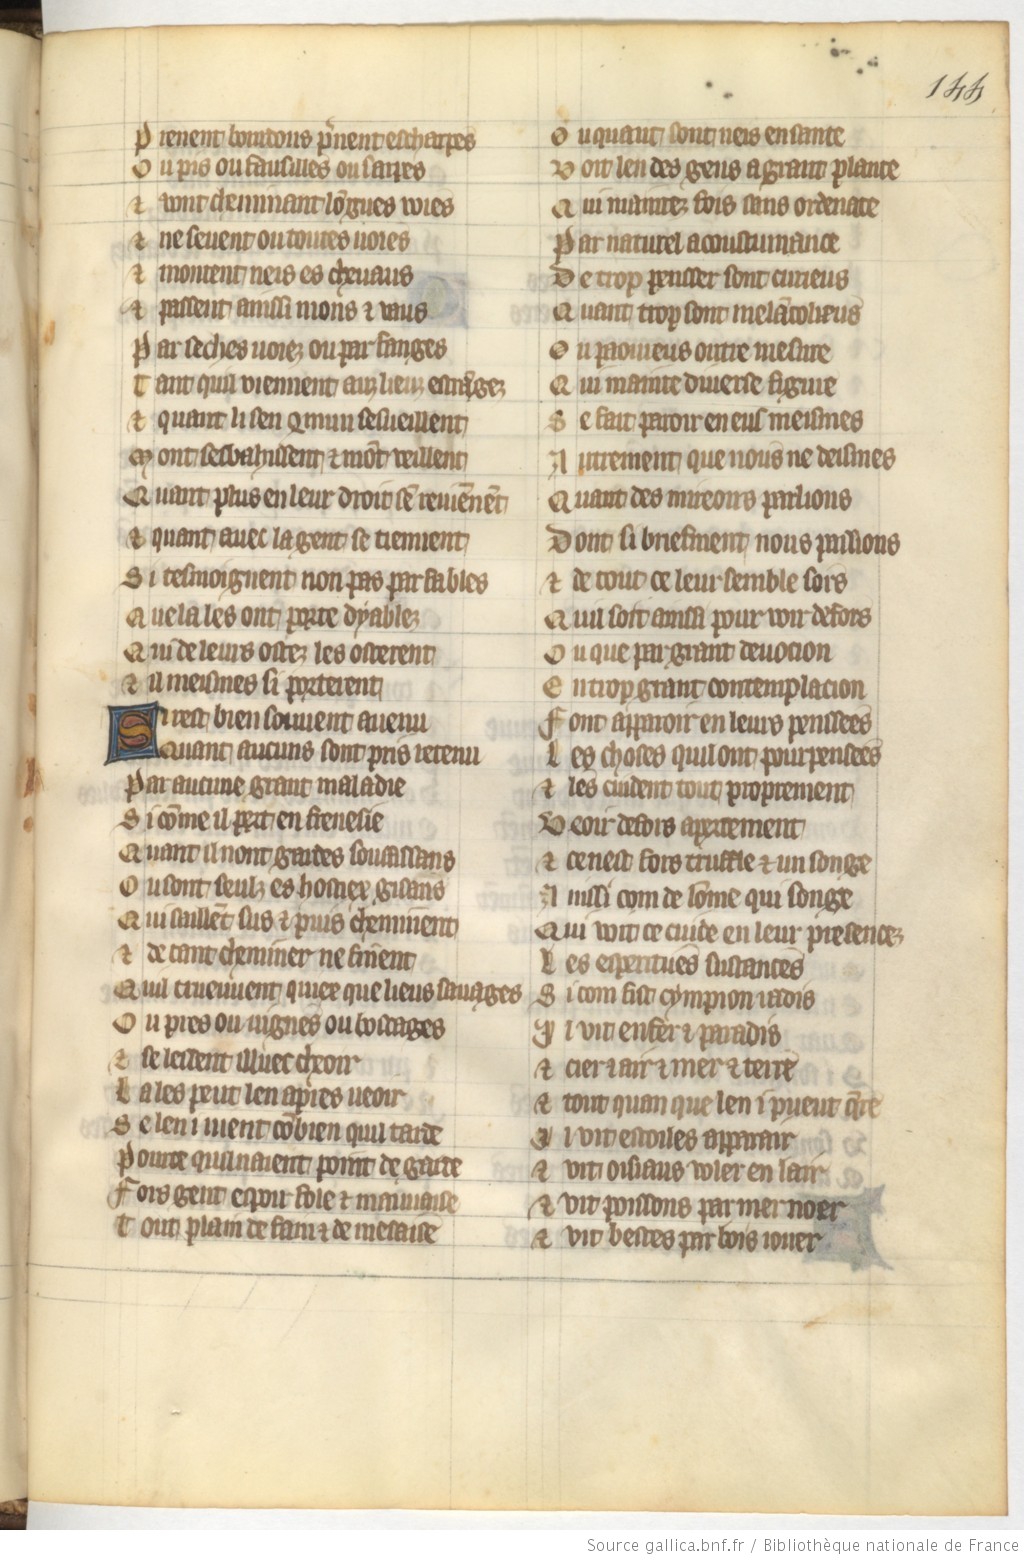 144
Prenent bourdons p̃nent escharpes
Ou pis ou faucilles ou sarpes
⁊ vont cheminant lõgues voies
⁊ ne sevent ou toutes voies
⁊ montent neis es chevaus
⁊ passent ainssi mons ⁊ vaus
Par seches voiez ou par fanges
Tant quil viennent aux lieux estrãgez
⁊ quant li sen qmun sesveillent
Mont sesbahissent ⁊ mõt veillent
Quant plus en leur droit sẽ reviẽnẽt
⁊ quant avec la gent se tiennent
Si tesmoignent non pas par fables
Que la les ont porte dyablez
Qui de leurs ostez les osterent
⁊ il meismes si porterent
Si rest bien souvent avenu
Quant aucuns sont pris retenu
Par aucune grant maladie
Si cõme il pert en frenesie
Quant il nont gardes souffissans
Ou sont seulz es hostiex gisans
Qui saillẽt sus ⁊ puis cheminent
⁊ de tant cheminer ne finẽnt
Quil truevent quiex que lieus sauvages
Ou pres ou vignes ou boscages
⁊ se lessent illuec cheoir
La les peut len apres veoir
Se len i vient cõbien quil tarde
Pource quil naient point de garde
Fors gent espoir fole ⁊ mauvaise
Tout plain de fain ⁊ de mesaise
Ou quant sont neis en sante
Voit len des gens a grant plante
Qui maintez fois sans ordenate
Par naturel acoustumance
De trop pensser sont curieus
Quant trop sont melãcolieus
Ou paoureus outre mesure
Qui mainte diverse figure
Se fait paroir en eus meismes
Autrement que nous ne deismes
Quant des mireoirs parlions
Dont si briefment nous passions
⁊ de tout ce leur semble fors
Quil soit ainssi pour voir defors
Ou que par grant devocion
En trop grant contemplacion
Font apparoir en leurs penssees
Les choses quil ont pourpensees
⁊ les cuident tout proprement
Veoir defors apertement
⁊ ce nest fors truffle ⁊ un songe
Ainssi com de lõme qui songe
Qui voit ce cuide en leur presencez
Les esperitues sustances
Si com fist cympion iadis
Il vit enfer ⁊ paradis
⁊ ciel ⁊ air ⁊ mer ⁊ terre
⁊ tout quan que len i puent q̃re
Il vit estoiles apparair
⁊ vit oisiaus voler en lair
⁊ vit poissons par mer noer
⁊ vit bestes par bois iouer
Source gallica.bnf.fr / Bibliothèque nationale de France